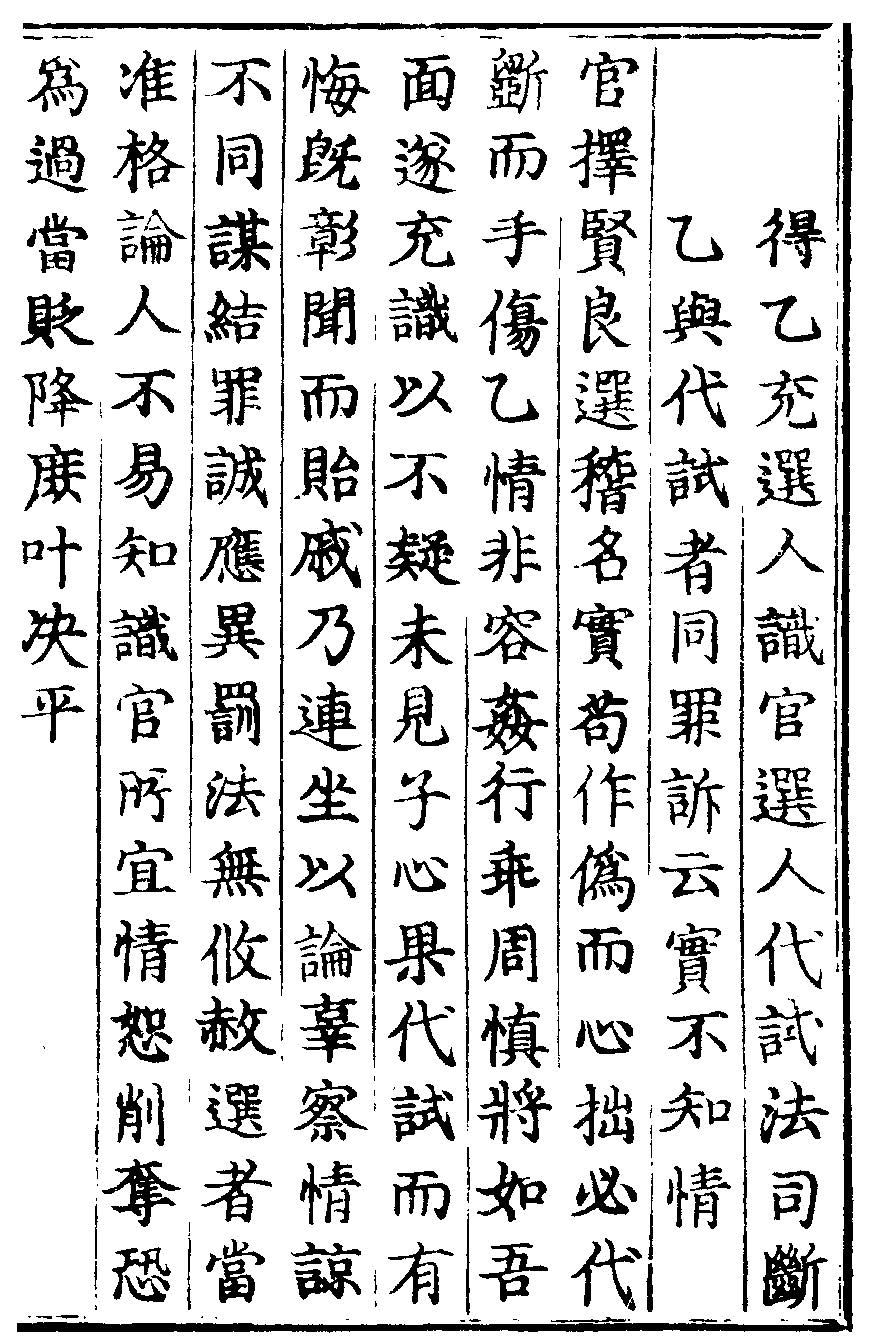 得乙充選人識官選人代試法司斷
乙與代試者同罪訴云實不知情
官擇賢良選稽名實苟作僞而心拙必代
斲而手傷乙情非容姦行乖周慎將如吾
面遂充識以不疑未見子心果代試而有
悔旣彰聞而貽戚乃連坐以論辜察情諒
不同謀結罪誠應異罰法無攸赦選者當
准格論人不易知識官所宜情恕削奪恐
爲過當貶降庶叶决平